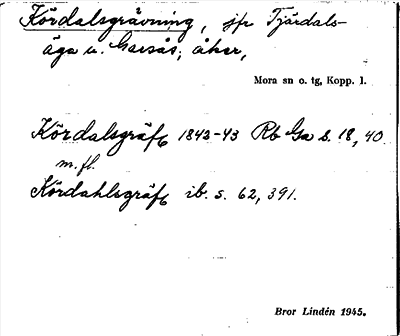 Kördalsgrävning, jfr Tjärdals-
äga u. Garsås; åker,
Mora sn o. tg, Kopp. l.
Kördalsgräf 1842-43 Rb Ga s. 18, 40
m. fl.
Kördahlsgräf ib. s. 62, 391.
Bror Lindén 1945.